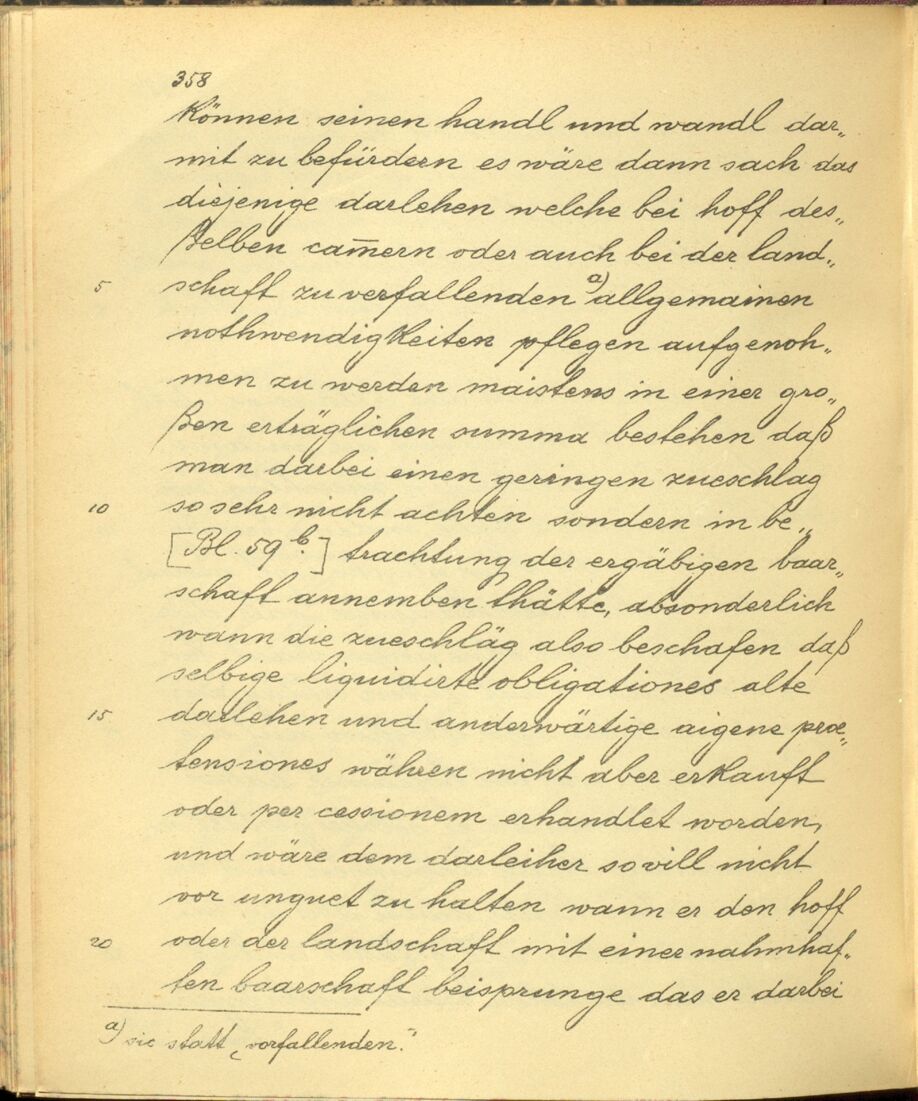 358
können seinen handl und wandl dar„
mit zu befürdern es wäre dann sach das
diejenige darlehen welche bei hoff des„
ßelben cam̄ern oder auch bei der land„
5 schaft zu verfallenden a) allgemainen
nothwendigkeiten pflegen aufgenoh„
men zu werden maistens in einer gro„
ßen erträglichen summa bestehen daß
man darbei einen geringen zueschlag
10 so sehr nicht achten sondern in be„
[Bl. 59 b.] trachtung der ergäbigen baar„
schaft annemben thätte, absonderlich
wann die zueschläg also beschafen daß
selbige liquidirte obligationes alte
15 darlehen und anderwärtige aigene prae„
tensiones währen nicht aber erkauft
oder per cessionem erhandlet worden,
und wäre dem darleiher sovill nicht
vor unguet zu halten wann er den hoff
20 oder der landschaft mit einer nahmhaf„
ten baarschaft beisprunge das er darbei
a) sic statt „vorfallenden."